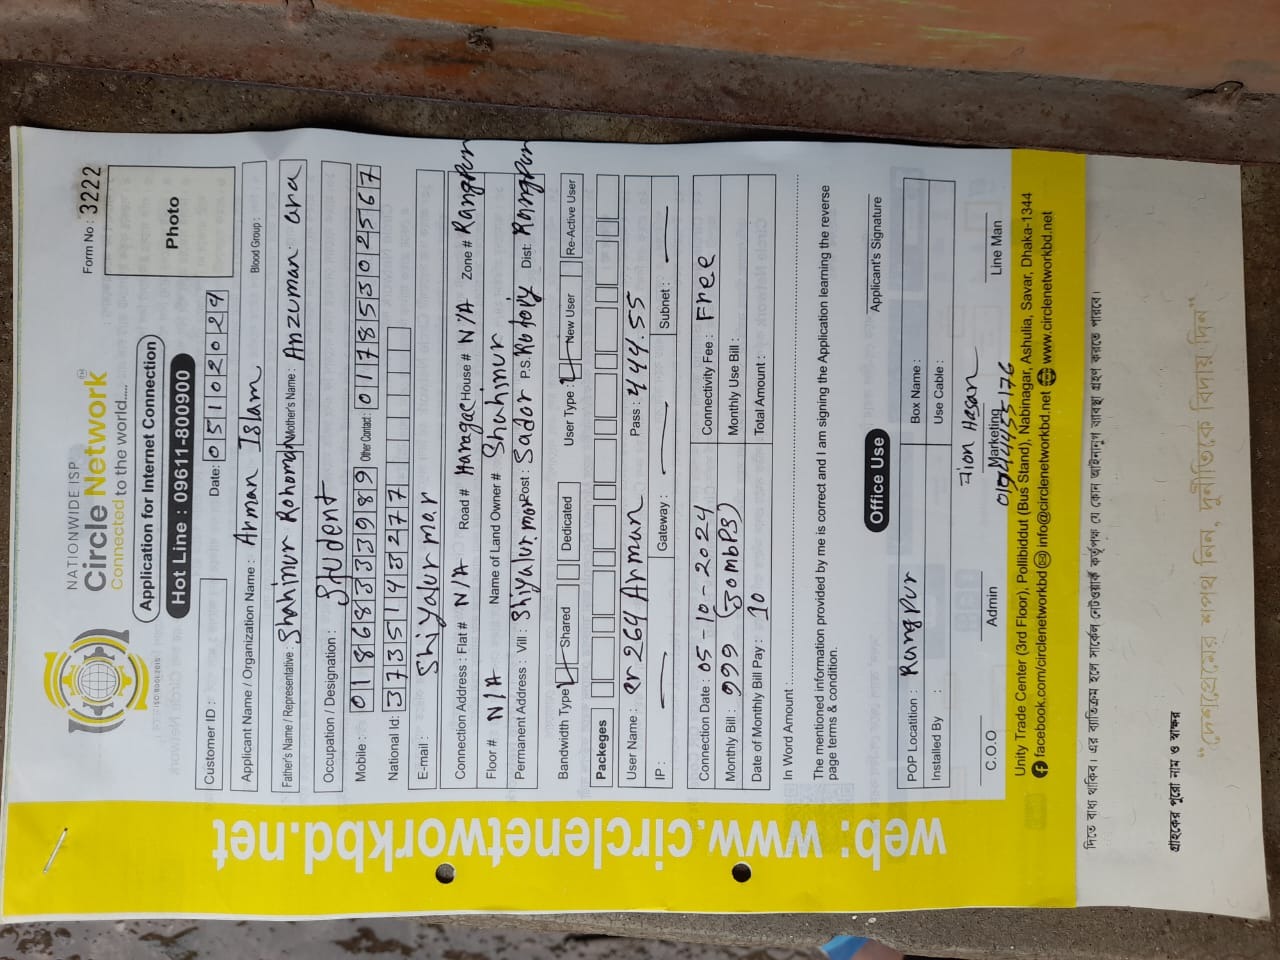 NATIONWIDE ISP
Circle Network
Connected to the world.....
Application for Internet Connection
Hot Line : 09611-800900
Form No : 3222
Photo
ISO 9001:2015
Customer ID :
Date: 05102024
Applicant Name / Organization Name : Arman Islam Blood Group :
Father's Name / Representative : Shahinur Rohoman Mother's Name : Anzuman ara
Occupation / Designation : Student
Mobile : 01868333989 Other Contact: 01785302567
National Id: 3735143277
E-mail : Shiyalur mo.r
Connection Address : Flat# N/A Road # Haragac House # N/A Zone # Rangpur
Floor # N/A Name of Land Owner # Shahinur
Permanent Address : Vill : Shiyalur.mor Post: Sador P.S. Dist: Rangpur
Bandwidth Type Shared Dedicated User Type : New User Re-Active User
Packeges
User Name : cr264 Arman Pass : 444.55
IP : Gateway : Subnet :
Connection Date : 05-10-2024 Connectivity Fee : Free
Monthly Bill : 999 (30mbps) Monthly Use Bill :
Date of Monthly Bill Pay : 10 Total Amount :
In Word Amount :
The mentioned information provided by me is correct and I am signing the Application learning the reverse
page terms & condition.
Applicant's Signature
Office Use
POP Locatition : Rangpur Box Name :
Installed By : Use Cable :
Hasan
C.O.O Admin Marketing Line Man
Unity Trade Center (3rd Floor), Pollibiddut (Bus Stand), Nabinagar, Ashulia, Savar, Dhaka-1344
facebook.com/circlenetworkbd info@circlenetworkbd.net www.circlenetworkbd.net
web: www.circlenetworkbd.net
দিতে বাধ্য থাকিব। এর ব্যতিক্রম হলে সার্কেল নেটওয়ার্ক কর্তৃপক্ষ যে কোন আইনানুগ ব্যবস্থা গ্রহণ করতে পারবে।
গ্রাহকের পুরো নাম ও স্বাক্ষর
"দেশপ্রেমের শপথ নিন, দুর্নীতিকে বিদায় দিন"